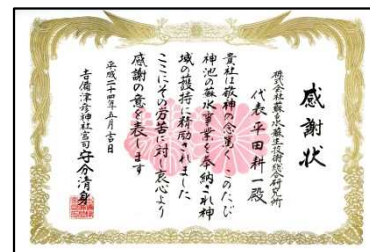 感謝状
株式会社蘇水蘇生技術総合研究所
代表 平田耕一殿
貴社は敬神の念篤く このたび
神池の蘇水事業を奉納され神
域の護持に精励されました
ここにその労苦に対し衷心より
感謝の意を表します
平成二十四年五月吉日
吉備津彦神社宮司 守分清身